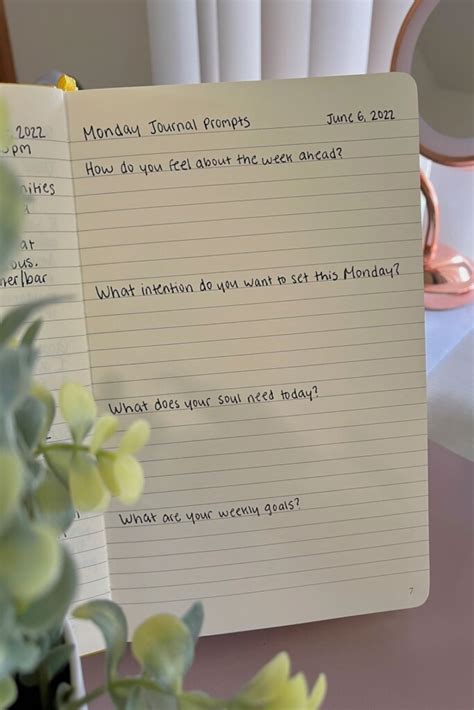 , 2022
pm
at
ous.
ner/bar
Monday Journal Prompts
June 6, 2022
How do you feel about the week ahead?
What intention do you want to set this Monday?
What does your soul need today?
What are your weekly goals?
7